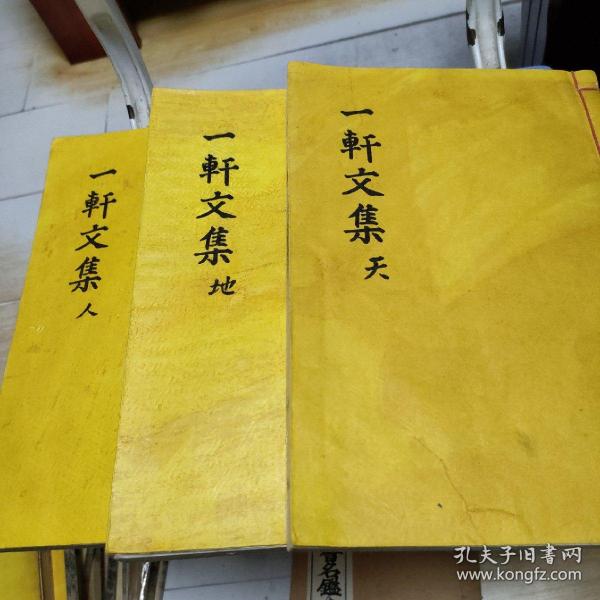 一軒文集 天
一軒文集 地
一軒文集 人
名鑑
孔夫子旧书网
www.kongfz.com